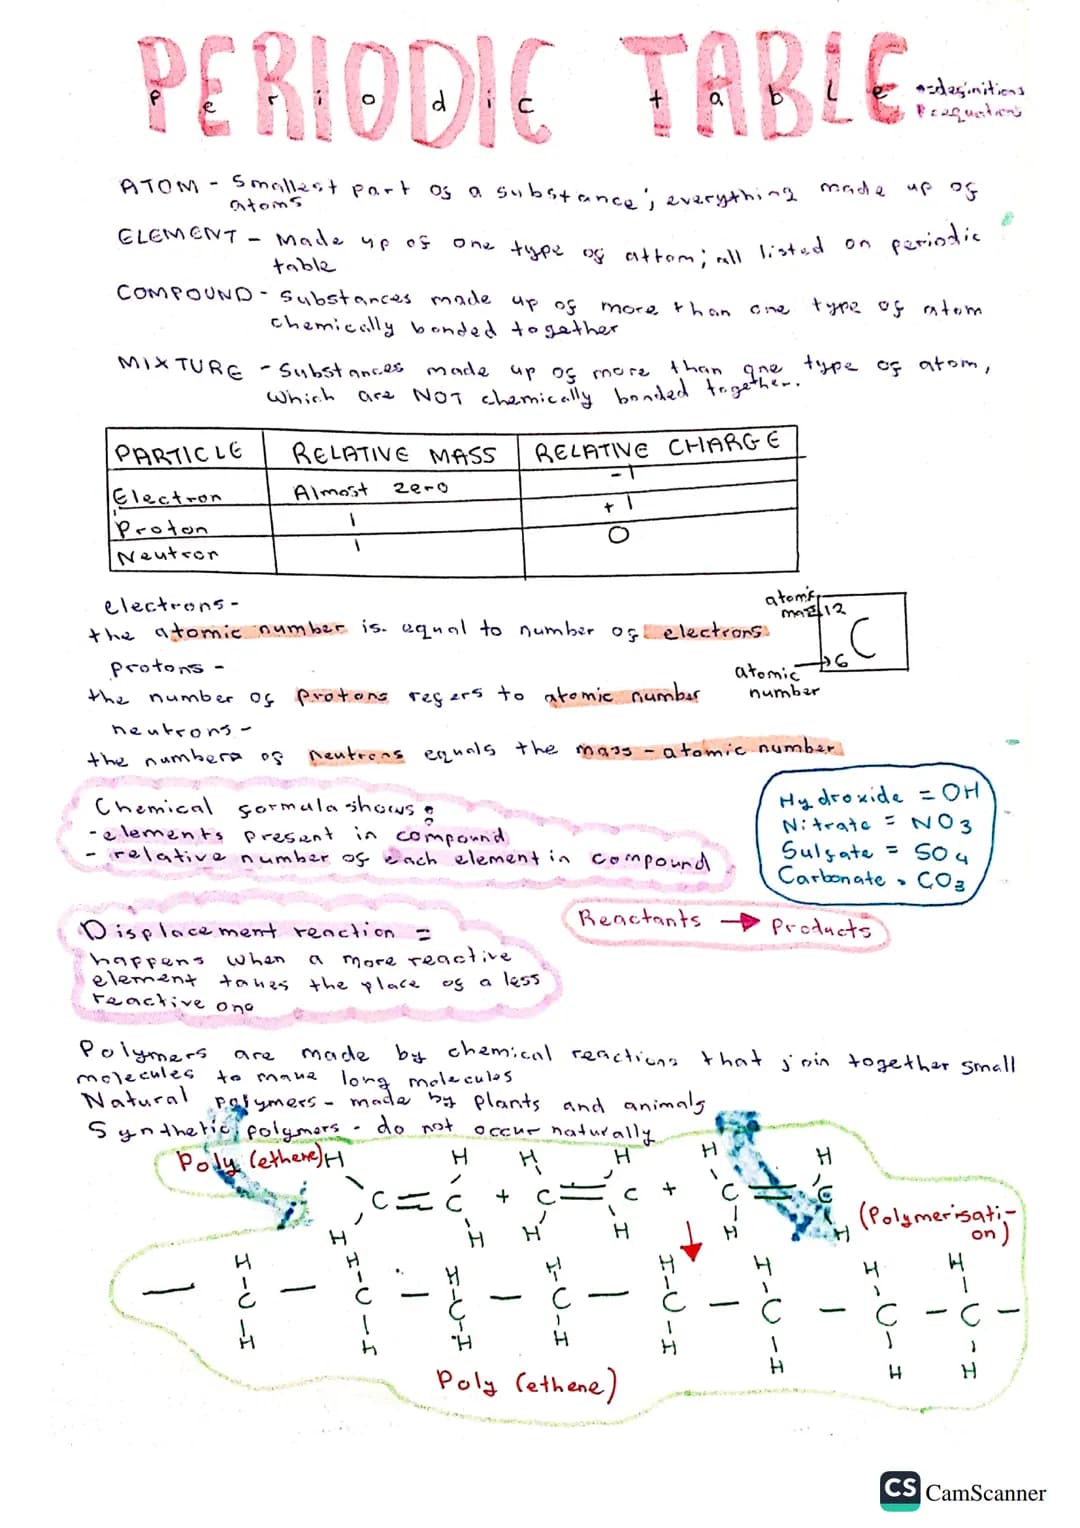 PERIODIC TABLE
periodic table
*=definitions
*=equations
ATOM - Smallest part of a substance; everything made up of
atoms
ELEMENT - Made up of one type of attom; all listed on periodic
table
COMPOUND - Substances made up of more than one type of atom
chemically bonded together
MIXTURE - Substances made up of more than one type of atom,
which are NOT chemically bonded together.
PARTICLE RELATIVE MASS RELATIVE CHARGE
Electron Almost zero -1
Proton 1 +1
Neutron 1 0
electrons-
the atomic number is equal to number of electrons
atomic
mass 12
C
6
atomic
number
protons -
the number of protons refers to atomic number
neutrons -
the numbers of neutrons equals the mass - atomic number
Chemical formula shows:
-elements present in compound
- relative number of each element in compound
Hydroxide = OH
Nitrate = NO3
Sulfate = SO4
Carbonate = CO3
Reactants → Products
Displacement reaction =
happens when a more reactive
element takes the place of a less
reactive one
Polymers are made by chemical reactions that join together small
molecules to make long molecules
Natural polymers - made by plants and animals
Synthetic polymers - do not occur naturally
Poly (ethene)
H H H H H H
C = C + C = C + C = C
H H H H H H
(Polymerisati-
on)
H H H H H H H H
— C — C — C — C — C — C — C — C —
H H H H H H H H
Poly (ethene)
CS CamScanner